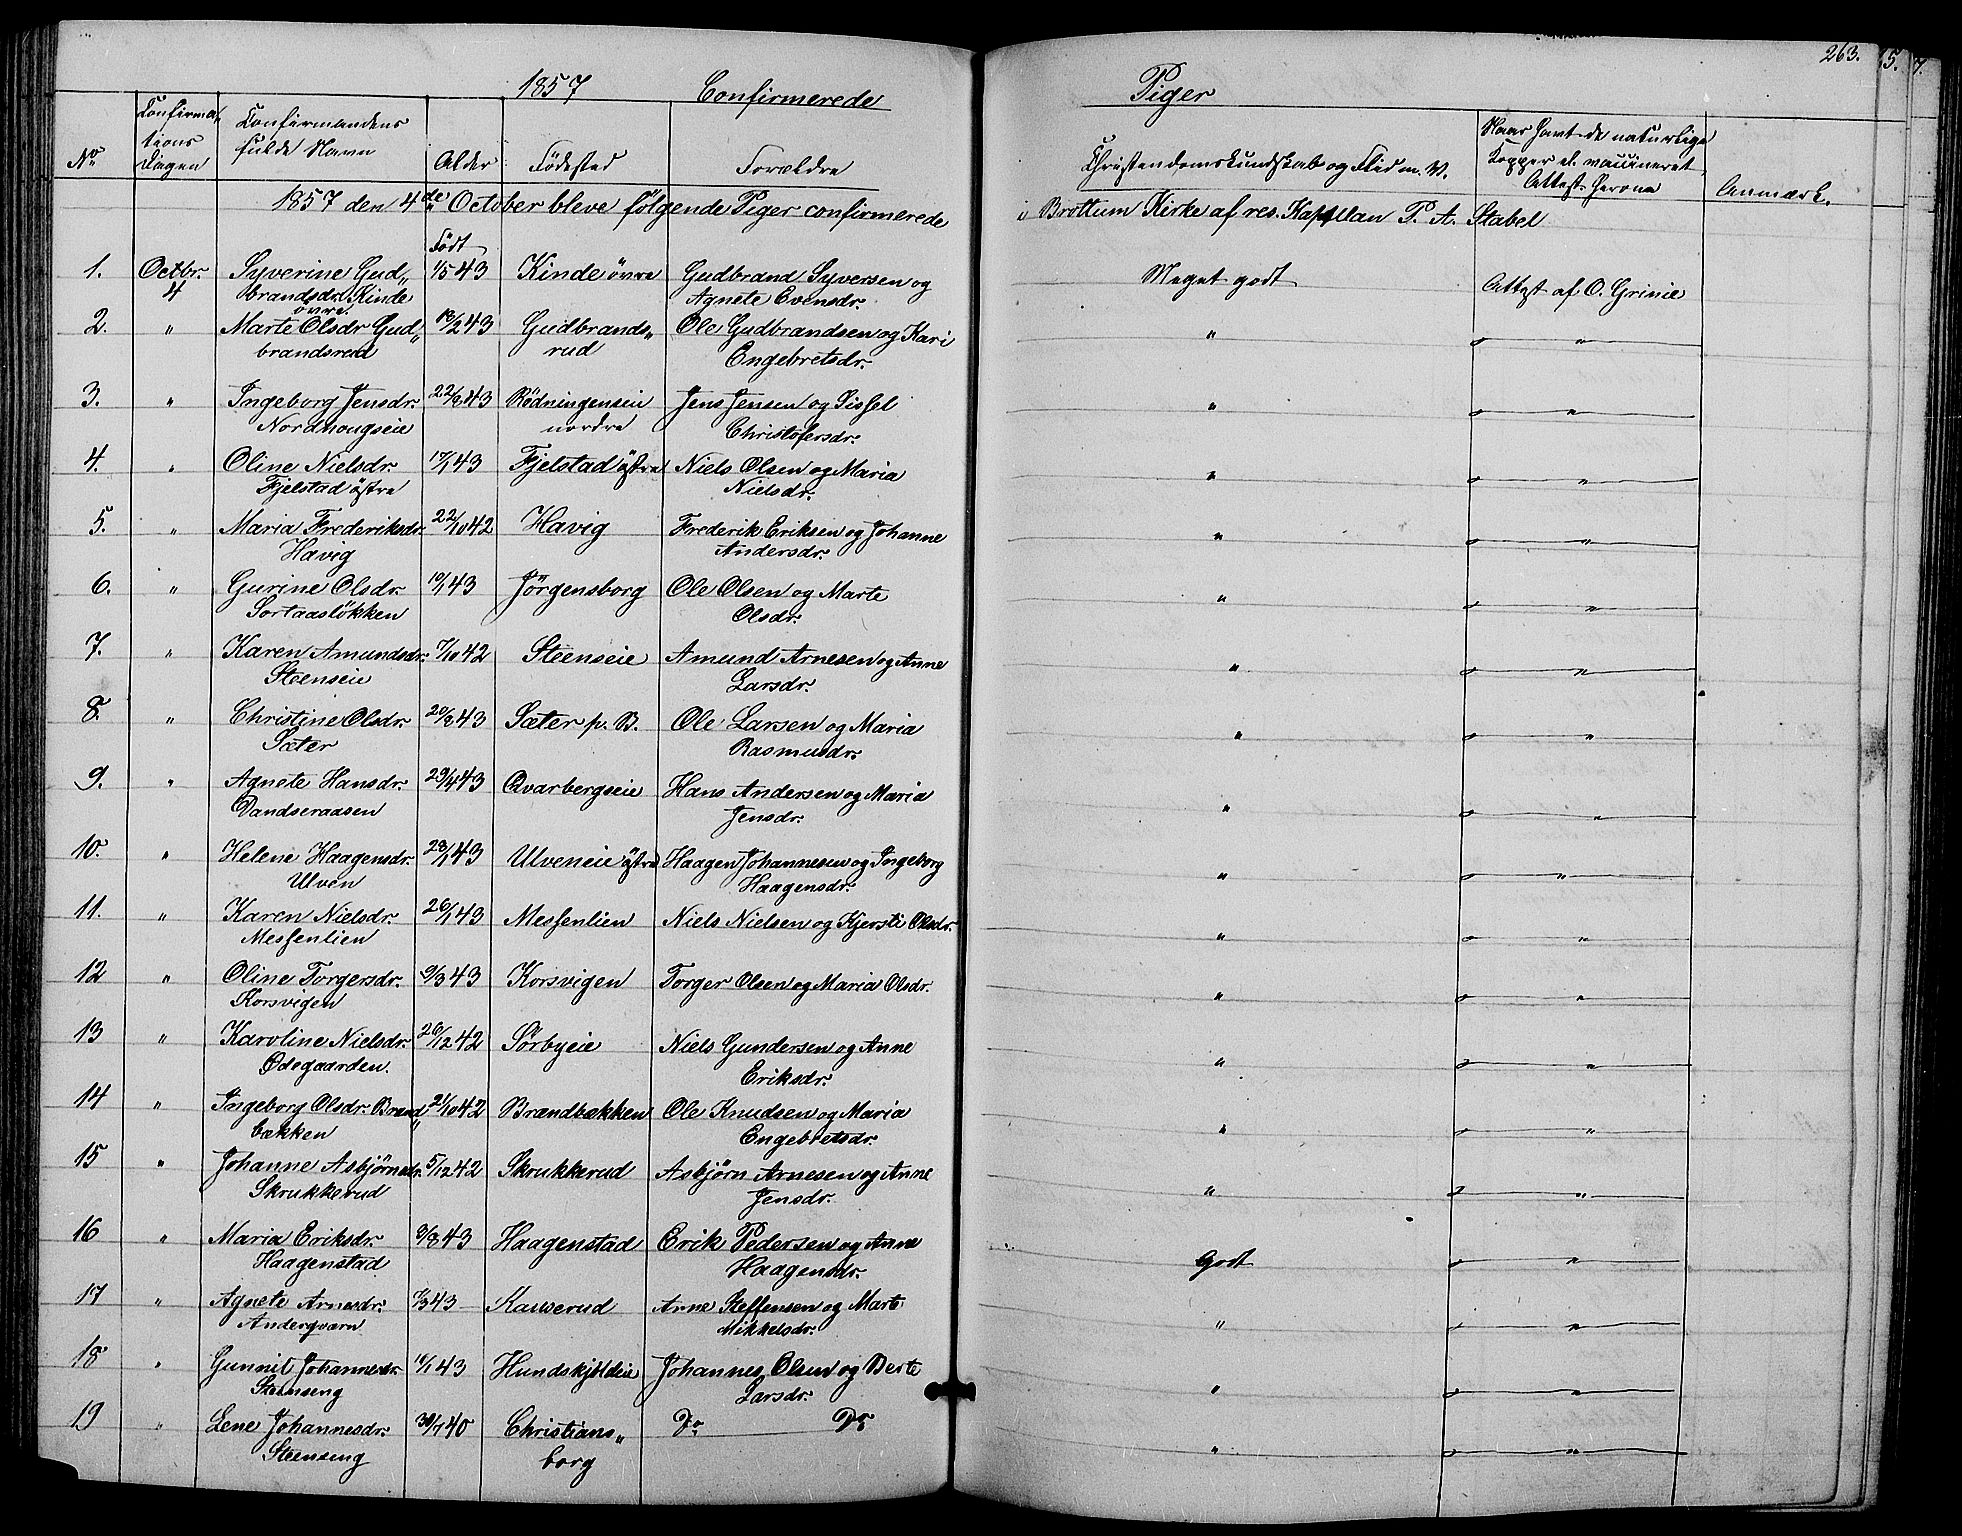 263.
1857 Confirmerede Piger
No Confirma-tions Dagen Confirmandens fulde Navn Alder Födested Forældre Christendomskundskab og Flid m. V. Naar havt de naturlige Kopper el. vaccineret, Attest herom Anmærk.
1857 den 4de October bleve følgende Piger confirmerede i Brøttum Kirke af res. Kapellan P. A. Stabel
Födt
1. Octbr. Syverine Gud„ 1/5 43 Kinde övre Gudbrand Syversen og Meget godt Attest af O. Grinie
4 brandsdr. Kinde Agnete Evensdr.
övre.
2. " Marte Olsdr Gud„ 13/2 43 Gudbrands„ Ole Gudbrandsen og Kari " "
brandsrud rud Engebretsdr.
3. " Ingeborg Jensdr. 22/3 43 Rödningenseie Jens Jensen og Sissel " "
Nordhougseie nordre Christofersdr.
4. " Oline Nielsdr. 17/1 43 Fjelstad östre Niels Olsen og Maria " "
Fjelstad östre Nielsdr.
5. " Maria Frederiksdr. 22/10 42 Havig Frederik Eriksen og Johanne " "
Havig Andersdr.
6. " Gurine Olsdr. 10/1 43 Jörgensborg Ole Olsen og Marte " "
Sortaaslökken Olsdr.
7. " Karen Amundsdr. 7/10 42 Steenseie Amund Arnesen og Anne " "
Steenseie Larsdr.
8. " Christine Olsdr. 20/3 43 Sæter p. B. Ole Larsen og Maria " "
Sæter Rasmusdr.
9. " Agnete Hansdr. 29/4 43 Qvarbergseie Hans Andersen og Maria " "
Dandseraasen Jensdr.
10. " Helene Haagensdr. 23/1 43 Ulveneie östre Haagen Johannesen og Ingeborg " "
Ulven Haagensdr.
11. " Karen Nielsdr. 26/1 43 Messenlien Niels Nielsen og Kjersti Olsdr. " "
Messenlien
12 " Oline Torgersdr. 9/3 43 Korsvigen Torger Olsen og Maria Olsdr. " "
Korsvigen
13 " Karoline Nielsdr. 26/12 42 Sörbyeie Niels Gundersen og Anne " "
Ödegaarden. Eriksdr.
14 " Ingeborg Olsdr. Brænd„ 21/10 42 Brændbækken Ole Knudsen og Maria " "
bækken Engebretsdr.
15 " Johanne Asbjörnsdr. 5/12 42 Skrukkerud Asbjörn Arnesen og Anne " "
Skrukkerud Jensdr.
16 " Maria Eriksdr. 8/3 43 Haagenstad Erik Pedersen og Anne Godt "
Haagenstad Haagensdr.
17 " Agnete Arnesdr. 43 Kauserud Arne Steffensen og Marte " "
Anderqvarn Mikkelsdr.
18 " Gunnil Johannesdr. 16/1 43 Hundskjöldeie Johannes Olsen og Berte " "
Steenseng Larsdr.
19 " Lene Johannesdr. 30/7 40 Christians„ Do Do " "
Steenseng borg